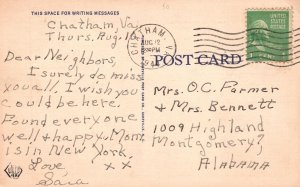 THIS SPACE FOR WRITING MESSAGES
Chatham, Va.
Thurs. Aug. 1
Dear Neighbors,
I surely do miss
you all. I wish you
could be here.
Found everyone
well & happy. Mom
is in New York.
Love,
x x
Sara
CHATHAM
AUG
POST CARD
Mrs. O.C. Parmer
& Mrs. Bennett
1009 Highland
Montgomery 7
Alabama